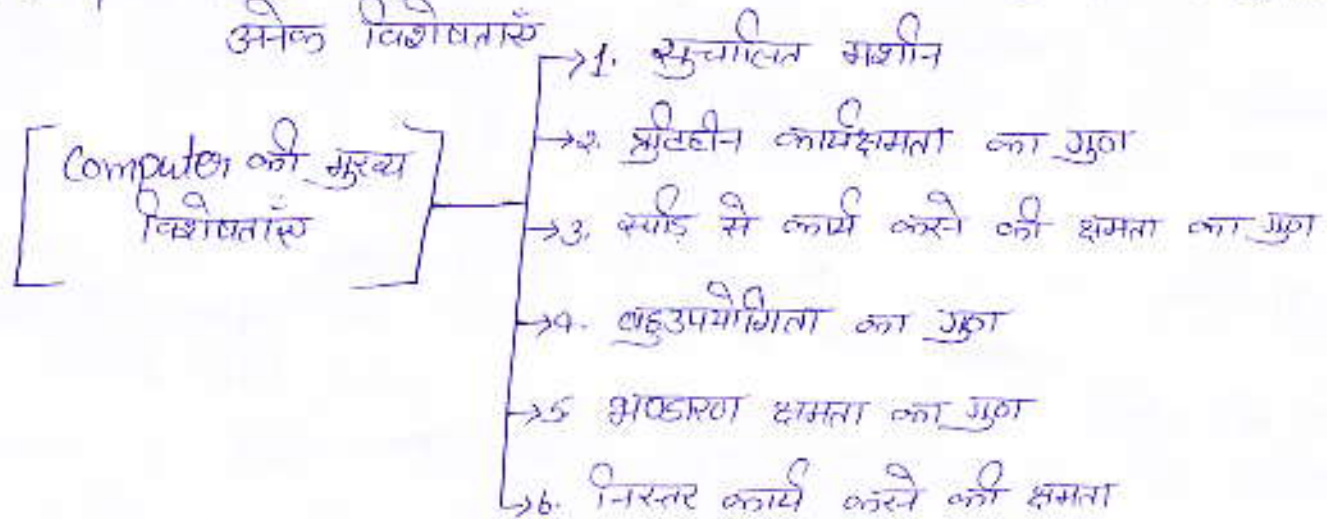 अनेक विशेषताएँ
Computer की मुख्य
विशेषताएँ
→1. सुचालित मशीन
→2. त्रुटिहीन कार्यक्षमता का गुण
→3. स्पीड से कार्य करने की क्षमता का गुण
→4. बहुउपयोगिता का गुण
→5 भण्डारण क्षमता का गुण
→6. निरन्तर कार्य करने की क्षमता